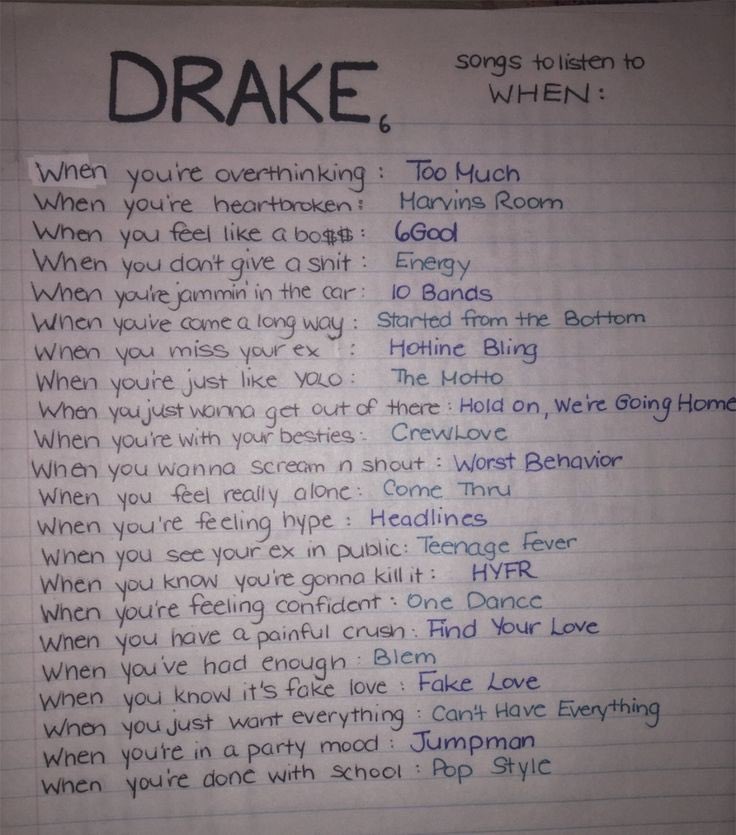 DRAKE 6
songs to listen to
WHEN:
When you're overthinking: Too Much
When you're heartbroken: Marvins Room
When you feel like a bo$$: 6God
When you don't give a shit: Energy
When you're jammin' in the car: 10 Bands
When you've come a long way: Started from the Bottom
When you miss your ex: Hotline Bling
When you're just like YOLO: The Motto
When you just wanna get out of there: Hold on, We're Going Home
When you're with your besties: CrewLove
When you wanna scream n shout: Worst Behavior
When you feel really alone: Come Thru
When you're feeling hype: Headlines
When you see your ex in public: Teenage Fever
When you know you're gonna kill it: HYFR
When you're feeling confident: One Dance
When you have a painful crush: Find Your Love
When you've had enough: Blem
When you know it's fake love: Fake Love
When you just want everything: Can't Have Everything
When you're in a party mood: Jumpman
When you're done with school: Pop Style